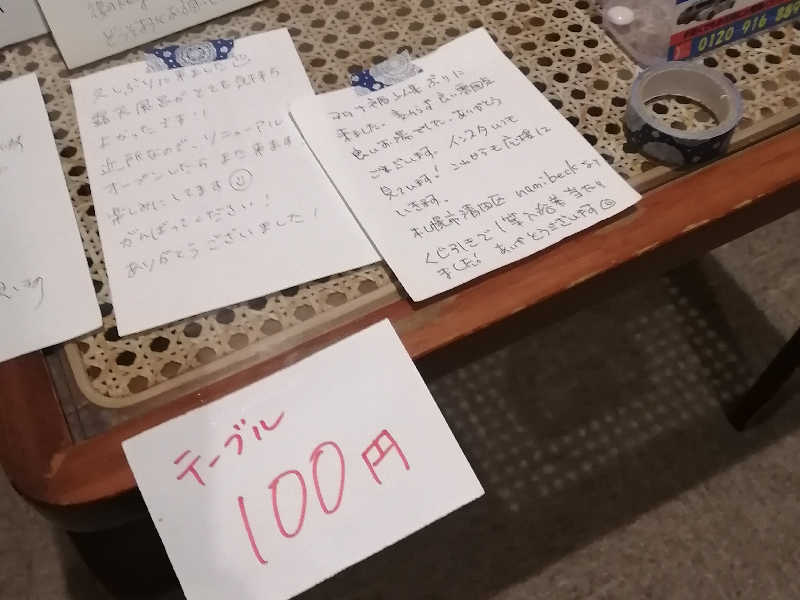 0120 916 889
久しぶりに来ました
露天風呂がとても気持ち
よかったです!!
近所なので、リニューアル
オープンしたらまた来ます
楽しみにしてます
がんばってください!
ありがとうございました!
ぶりに
来ました。変わらず良い
良いお湯でした。ありがとう
ございます。インスタいつも
見ています! これからも応援して
いきます。
札幌市清田区 nami.beck
くじ引きで1等入浴券当たり
ました! ありがとうございます
テーブル
100円